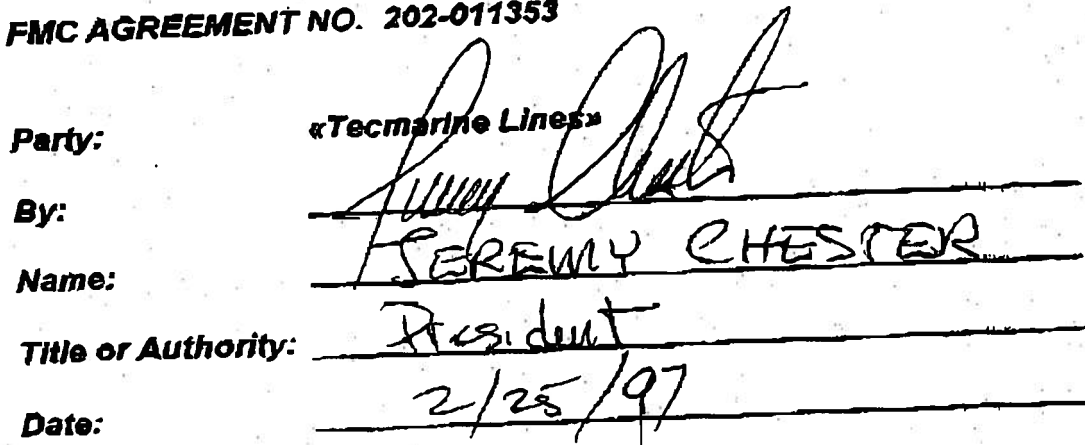 FMC AGREEMENT NO. 202-011353
Party: «Tecmarine Lines»
By: Jeremy Chester
Name: JEREMY CHESTER
Title or Authority: President
Date: 2/25/97